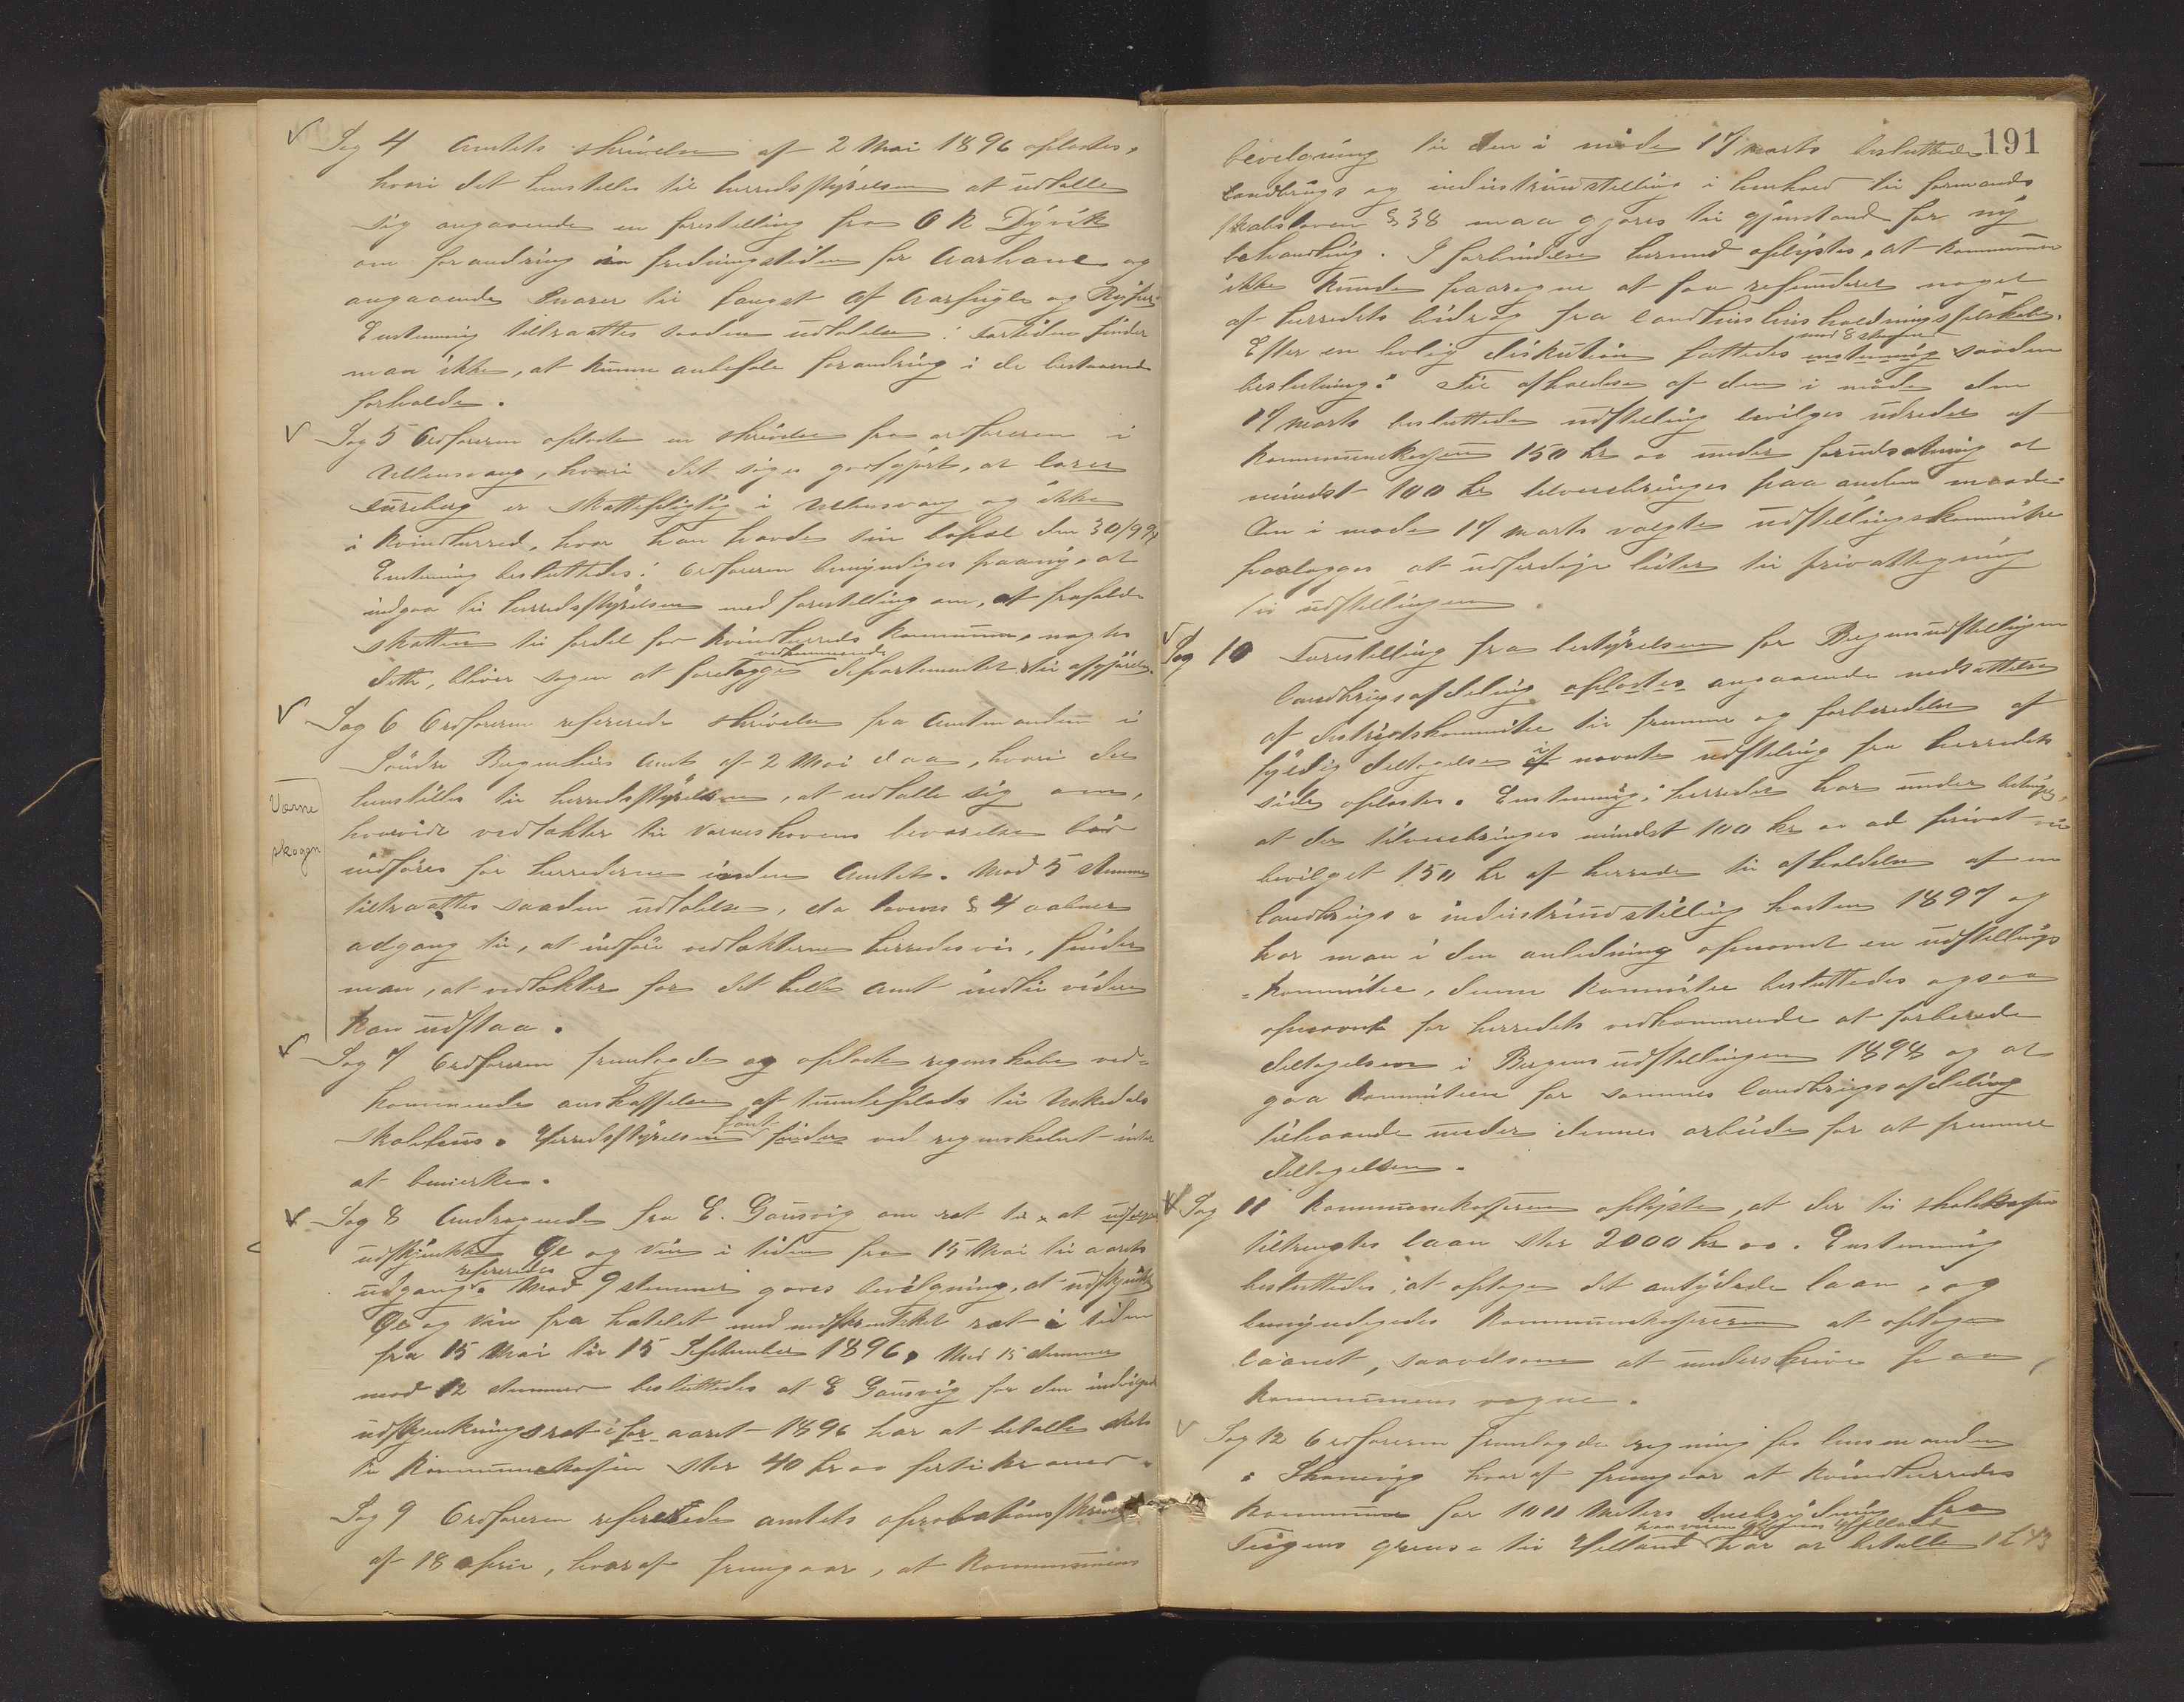 Sag 4 Amtets skrivelse af 2 Mai 1896 oplæstes,
hvori det henstilles til herredsstyrelsen at udtalle
sig angaaende en forestilling fra O N Dyvik
om forandring i fredningstiden for Aarhane og
angaaende Snarer til fangst af Aarfugle og Ryper
Enstemmig tiltraattes saadan udtalelse: Fortiden finder
man ikke, at kunne anbefale forandring i de bestaaende
forholde.
Sag 5 Ordføreren oplæste en skrivelse fra ordføreren i
Ullensvang, hvori det siges godtgjort, at lærer
er skattepligtig i Ullensvang og ikke
i Kvindherred, hvor han havde sin bopæl den 30/9 94
Enstemmig besluttedes: Ordføreren bemyndiges paany, at
indgaa til herredsstyrelsen med forestilling om, at frafalde
skatten til fordel for Kvindherreds kommune, nægtes
vedkommende
dette, bliver sagen at forelægges departementet til afgjørelse.
Sag 6 Ordføreren refererede skrivelse fra Amtmanden i
Søndre Bergenhus Amt af 2 Mai d aa, hvori det
Værne
skogen
henstilles til herredsstyrelsen, at udtalle sig om,
hvorvidt vedtækter til Værneskovens bevarelse bør
indføres for herrederne inden Amtet. Mod 5 stemmer
tiltraattes saadan udtalelse, da lovens § 4 aabner
adgang til, at indføre vedtækterne herredsvis, finder
man, at vedtækter for det hele Amt indtil videre
kan udstaa.
Sag 7 Ordføreren fremlagde og oplæste regnskabe ved=
kommende anskaffelsen af tumleplads til Uskedals
skolehus. Herredsstyrelsen
fant
finder ved regnskabet intet
at bemerke.
Sag 8 Andragende fra E. Gausvig om ret til at
udskjænke Øl og Vin i tiden fra 15 Mai til aarets
refereredes
udgang. Mod 9 stemmer gaves bevilgning, at udskjænke
Øl og Vin fra hotelet med indskrænket ret i tiden
fra 15 Mai til 15 September 1896. Med 15 stemmer
mod 12 stemmer besluttedes at E Gausvig for den indvilgede
udskjænkningsret for aaret 1896 har at betalle
til kommunekassen stor 40 kr oo førti kroner.
Sag 9 Ordføreren refererede amtets aprobationsskrivelse
af 18 april, hvoraf fremgaar, at kommunens
191
bevilgning til den i møde 17 marts besluttede
Landbrugs og industriudstilling i henhold til formands
skabsloven § 38 maa gjøres til gjenstand for ny
behandling. I forbindelse hermed oplystes, at kommunen
ikke kunde paaregne at faa refunderet noget
af herredets bidrag fra landhusholdningsselskabet.
med 8 stemmer
Efter en livlig diskution fattedes enstemmig saadan
beslutning: Til afholdelse af den i møde den
17 marts besluttede udstilling bevilges udredet af
kommunekassen 150 kr oo under forudsætning at
mindst 100 kr tilveiebringes paa anden maade.
Den i møde 17 marts valgte udstillingskommitee
paalægges at udferdige lister til privattegning
til udstillingen.
Sag 10 Forestilling fra bestyrelsen for Bergensudstillingen
landbrugsafdeling oplæstes angaaende nedsættelse
af distriktskommitee til fremme og forberedelse af
fyldig deltagelse i nævnte udstilling fra herredets
side oplæstes. Enstemmig: herredet har under betingelse,
at der tilveiebringes mindst 100 kr oo ad privat vei
bevilget 150 kr af herredet til afholdelse af en
landbrugs & industriudstilling høsten 1897 og
har man i den anledning opnævnt en udstillings
=kommitee, denne kommitee besluttedes ogsaa
opnævnt for herredets vedkommende at forberede
deltagelsen i Bergens udstillingen 1898 og at
gaa kommiteen for sammes landbrugsafdeling
tilhaande under dennes arbeide for at fremme
deltagelsen.
Sag 11 Kommunekassereren oplyste, at der til skolekassen
tiltrengtes laan stor 2000 kr oo. Enstemmig
besluttedes: at optage det antydede laan, og
bemyndigedes Kommunekassereren at optage
laanet, saavelsom at underskrive paa
kommunens vegne.
Sag 12 Ordføreren fremlagde regning fra lensmanden
i Skonevig hvoraf fremgaar at Kvindherreds
kommune for 1011 Meters fra
Teigens grense til Helland har at betalle 12 43